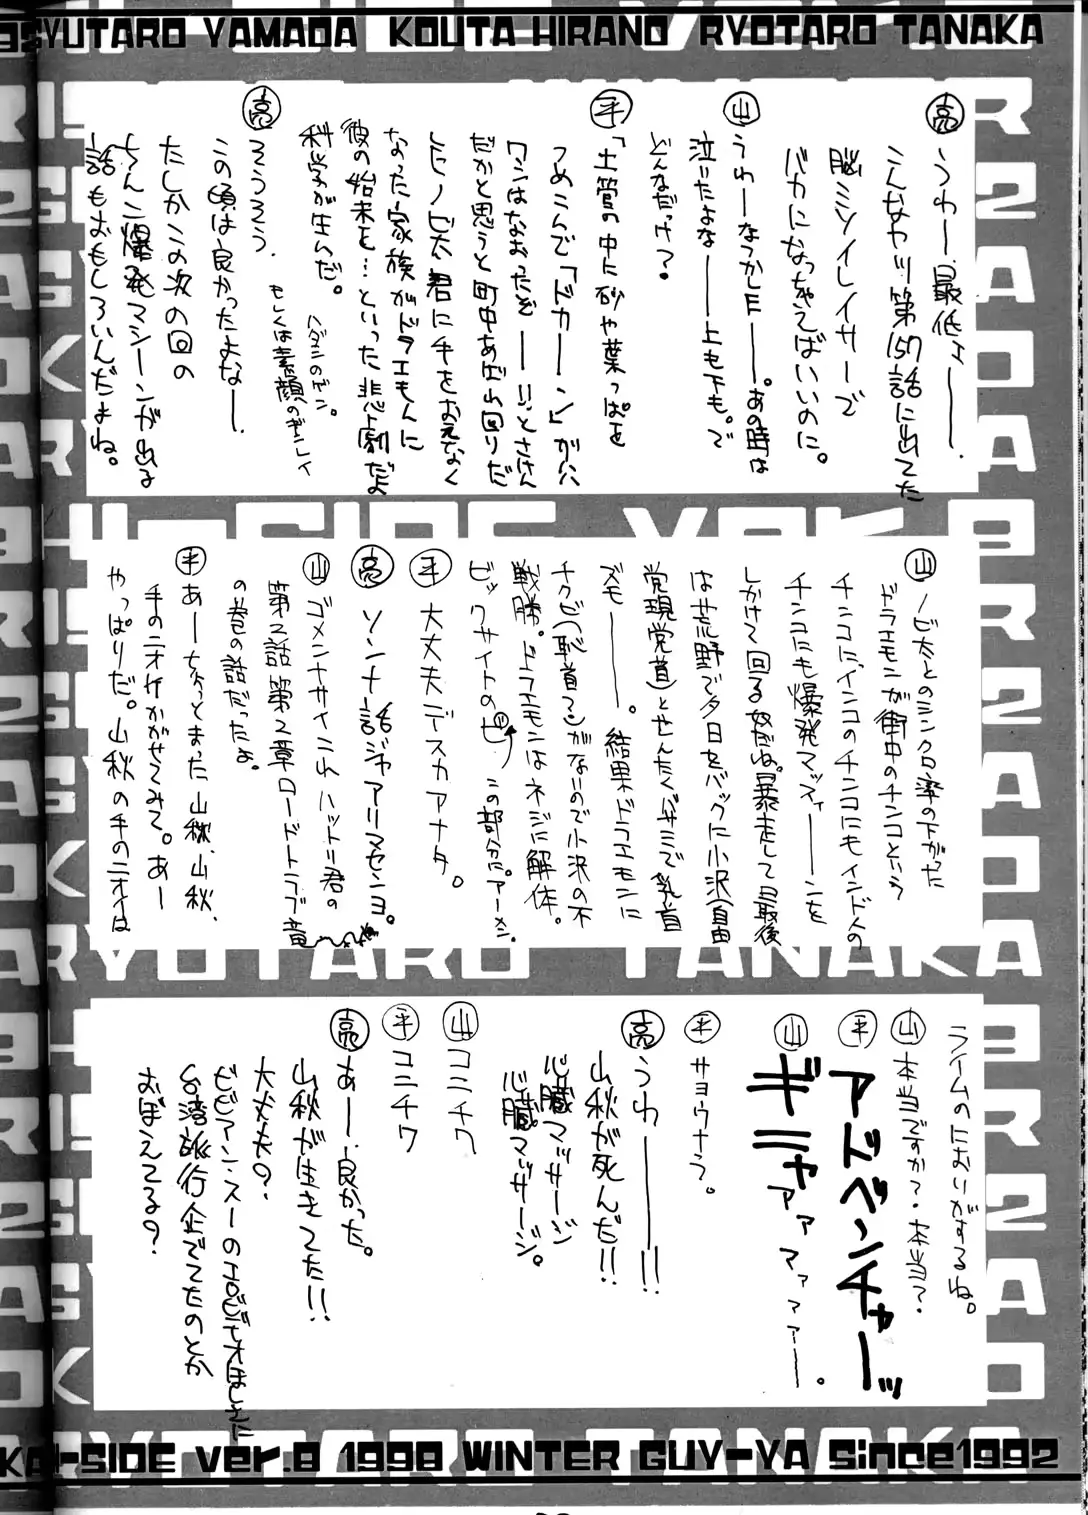 SYUTARO YAMADA KOUTA HIRANO RYOTARO TANAKA
亮 うわー、最低よーーー。
こんなヤツ第157話に出てた
脳ミソイレイサーで
バカになっちゃえばいいのに。
山 うわーなつかしE──。あの時は
泣いたよな──上も下も。で
どんなだっけ?
平 「土管の中に砂や葉っぱを
つめこんで「ドカーーン」が八
ワシはなおったぞ──!!とさけん
だかと思うと町中あばれ回りだ
しヒノビ太君に手をおえなく
なった家族がドラえもんに
彼の始末を…といった悲劇だよ
科学が生んだ。
ハダシのゲン。
もしくは素顔のギンレイ
亮 そうそう、
この頃は良かったよなー。
たしかこの次の回の
ちんこ爆発マシーンが出る
話もおもしろいんだよね。
山 ノビ太とのシンクロ率の下がった
ドラエモンが街中のチンコという
チンコに、インコのチンコにもインド人の
チンコにも爆発マッスィーーンを
しかけて回る奴だね。暴走して最後
は荒野で夕日をバックに小沢(自由
党現党首)とせんたくバサミで乳首
ズモーー。結果ドラエモンに
チクビ(恥首マン)がないので小沢の不
戦勝。ドラエモンはネジに解体。
ビックサイトのピ
この部分に。アーメン。
平 大丈夫デスカアナタ。
亮 ソンナ話ジャアリマセンヨ。
山 ゴメンナサイこれハットリ君の
第2話第2章ロードトラブ竜
の巻の話だったよ。
平 あーちょっとまった山秋、山秋、
手のニオイかがせてみて。あー
やっぱりだ。山秋の手のニオイは
ライムのにおいがするね。
山 本当ですか?本当?
平 アドベンチャーッ
山 ギニャァァァマァァァー。
平 サョウナラ。
亮 うわーーー!!
山秋が死んだ!!
心臓マッサージ
心臓マッサージ。
山 コニチワ
平 コニチワ
亮 あー、良かった。
山秋が生きてた!!
大丈夫?
ビビアン・スーのエロビデオほしさに
台湾旅行企ててたのとか
おぼえてる?
KAI-SIDE ver.8 1998 WINTER GUY-YA Since1992